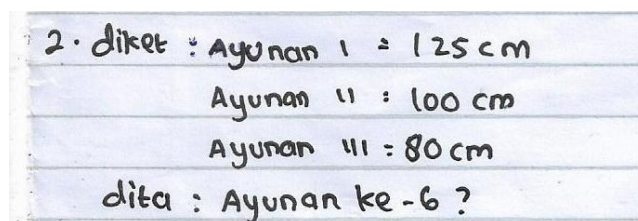 2. diket : Ayunan I = 125 cm
Ayunan II : 100 cm
Ayunan III : 80 cm
dita : Ayunan ke-6 ?